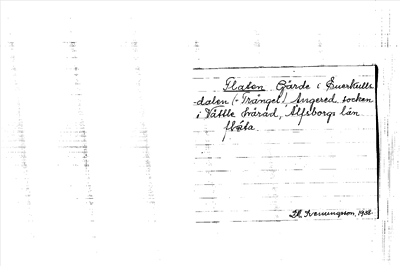 Flaten. Gärde i Duerkulle-
dalen (= Trånget), Angered socken
i Vättle härad, Älfsborgs län
flata.
Th. Hermingsson, 1932.